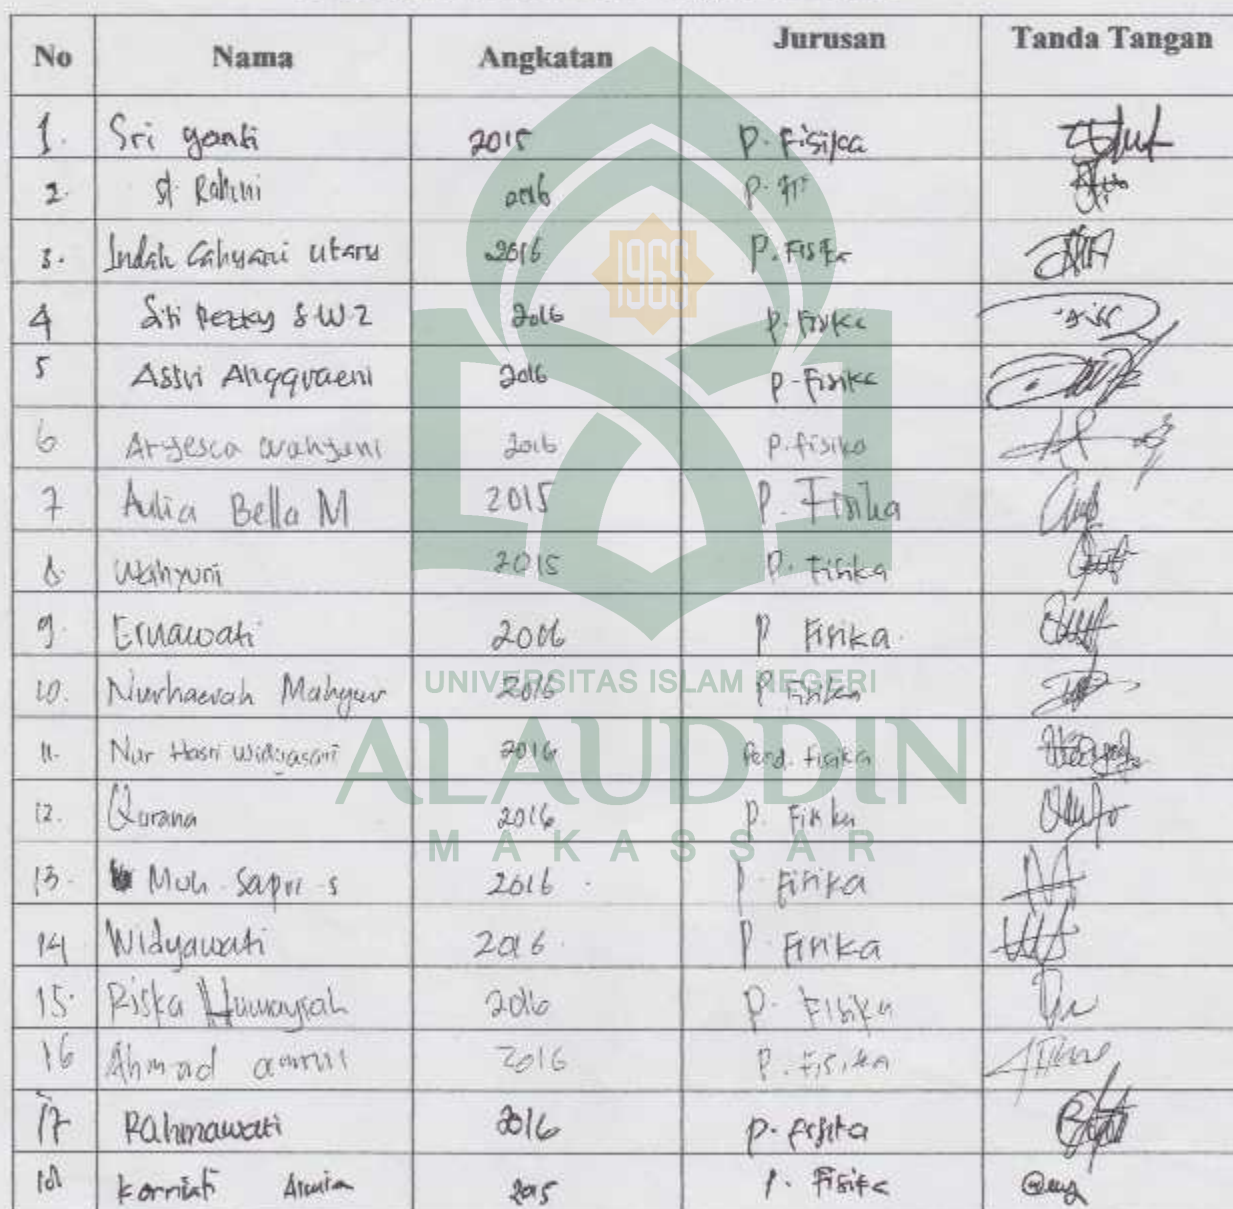 No Nama Angkatan Jurusan Tanda Tangan
1. Sri yanti 2015 P. Fisika
2. St. Rahmi 2016 P. Fis
3. Indah Cahyani Utary 2016 P. Fisika
4 Siti Rezky S.W.Z 2016 P. Fisika
5 Astri Anggraeni 2016 P. Fisika
6 Aryesca Wahyuni 2016 P. fisika
7 Aulia Bella M 2015 P. Fisika
8. Wahyuni 2015 P. Fisika
9. Ernawati 2016 P Fisika
10. Nurhaerah Mahyur 2016 P. Fisika
11. Nur Hasri Widyasari 2016 Pend. Fisika
12. Qurana 2016 P. Fisika
13. Moh. Sapri .s 2016 P. Fisika
14 Widyawati 2016 P. Fisika
15. Riska Humaysah 2016 P. Fisika
16 Ahmad amrul 2016 P. Fisika
17 Rahmawati 2016 P. Fisika
18 2015 P. Fisika
1965
UNIVERSITAS ISLAM NEGERI
ALAUDDIN
MAKASSAR